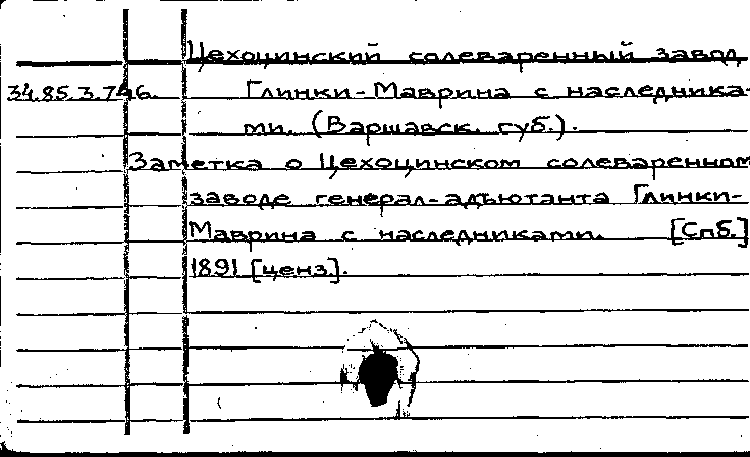 Цехоцинский солеваренный завод
34.85.3.746. Глинки-Маврина с наследника-
ми. (Варшавск. губ.).
Заметка о Цехоцинском солеваренном
заводе генерал-адъютанта Глинки-
Маврина с наследниками. [Спб.]
1891 [ценз.].